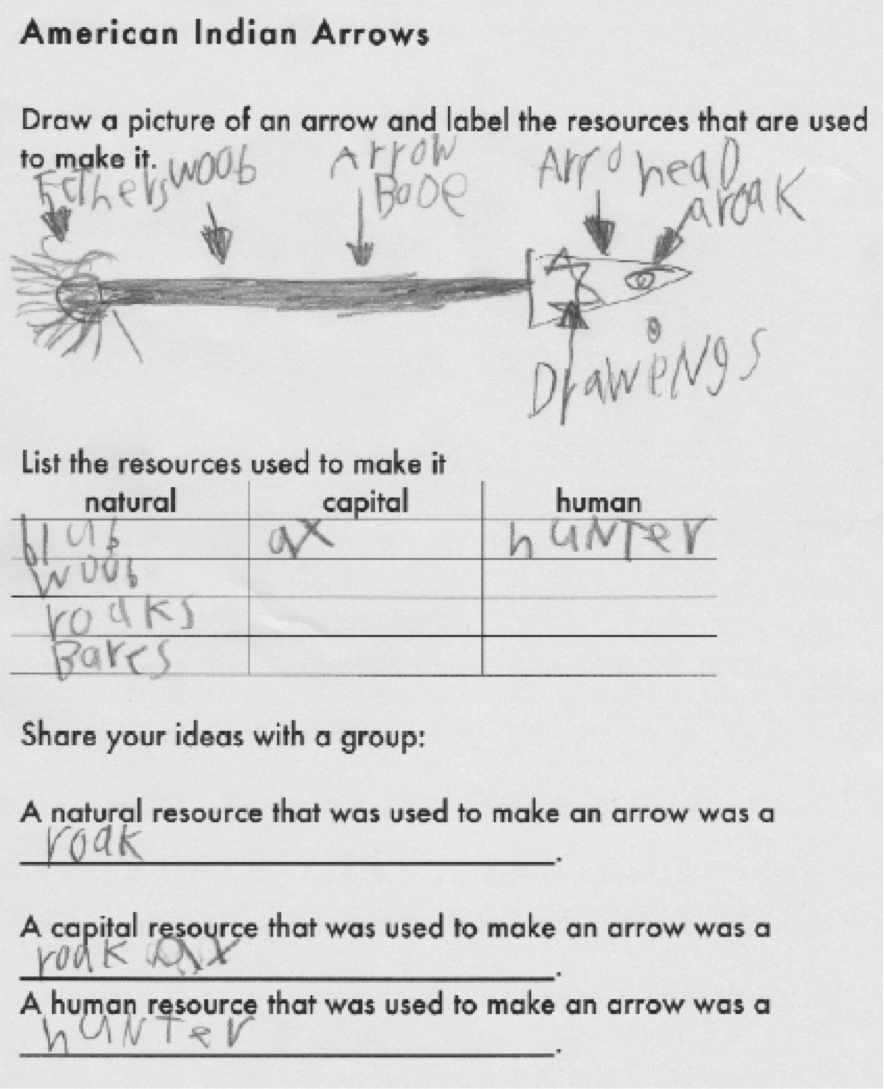 American Indian Arrows
Draw a picture of an arrow and label the resources that are used
to make it.
Fethers woob Arrow Bode Arrohead aroak
Drawings
List the resources used to make it
natural capital human
blub ax hunter
woob
roaks
Bares
Share your ideas with a group:
A natural resource that was used to make an arrow was a
roak.
A capital resource that was used to make an arrow was a
roak ax.
A human resource that was used to make an arrow was a
hunter.